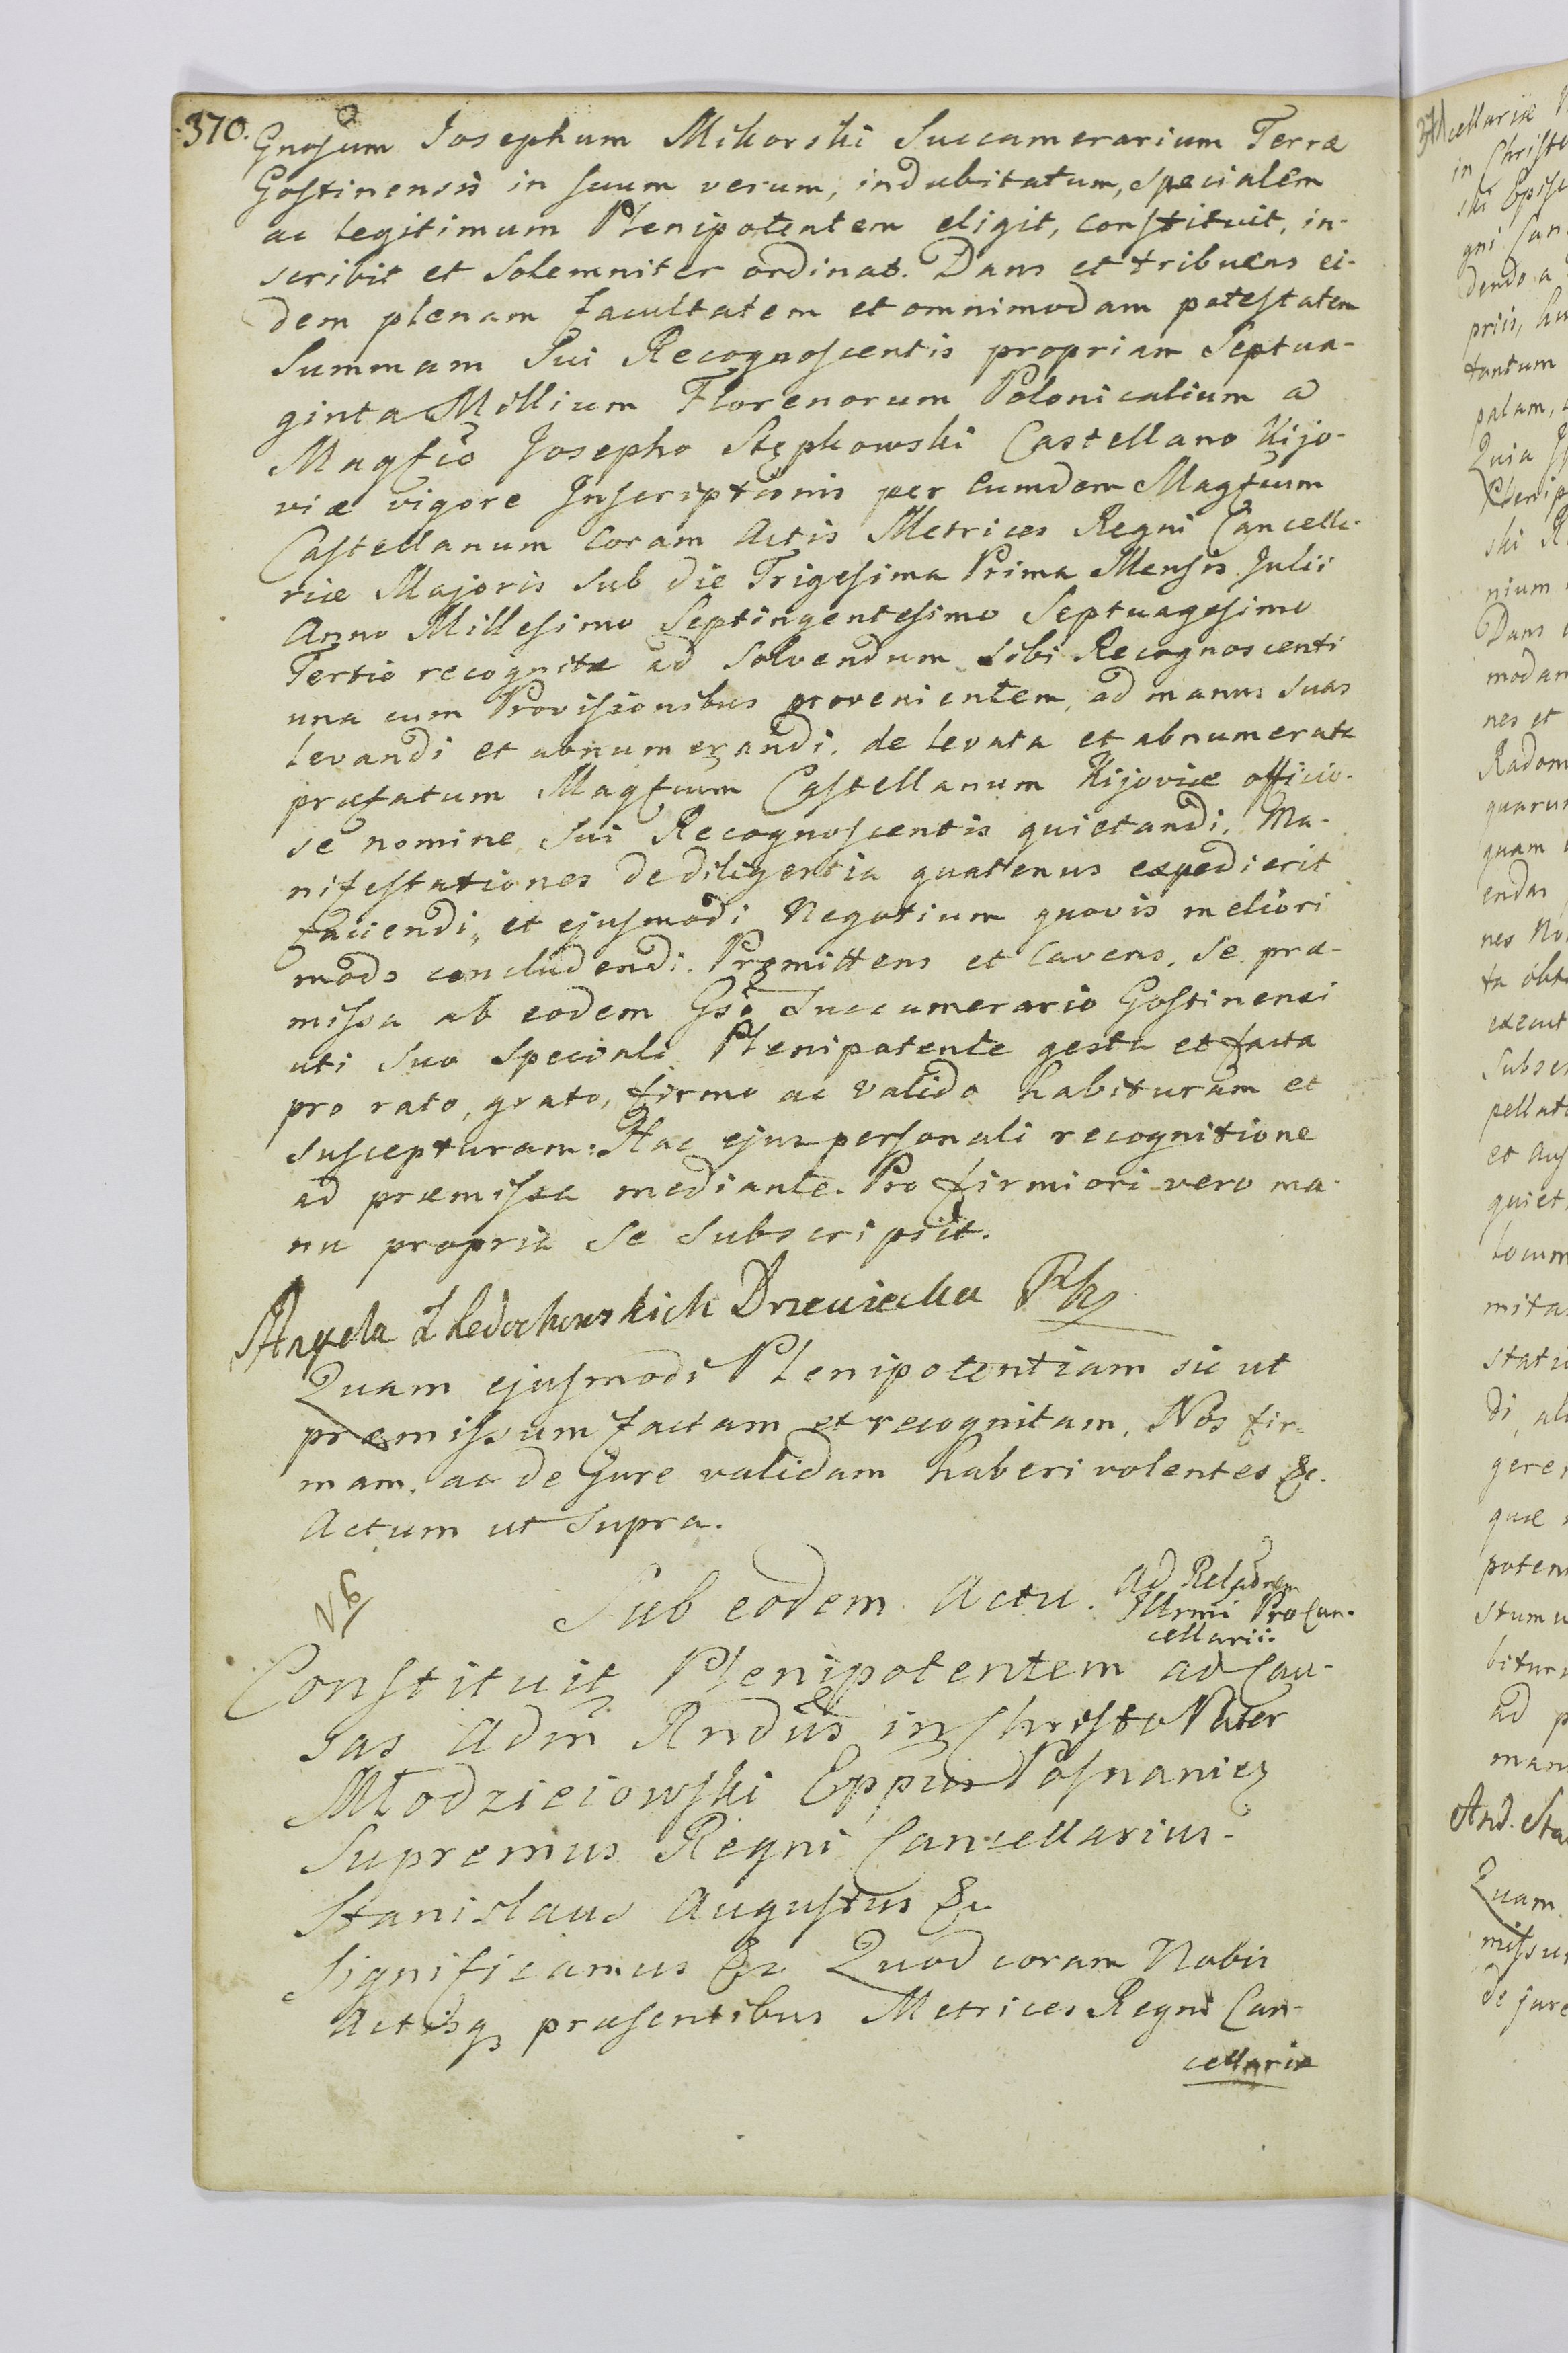 370.
Gnosum Josephum Mikorski Succamerarium Terræ
Gostinensis in suum verum, indubitatum, specialem
ac legitimum Plenipotentem eligit, constituit, in-
scribit et solemniter ordinat. Dans et tribuens ei-
dem plenam facultatem et omnimodam potestatem
Summam Sui Recognoscentis propriam Septua-
ginta Millium Florenorum Polonicalium a
Magfco Josepho Stępkowski Castellano Kijo-
viæ vigore Inscriptionis per Eumdem Magfcum
Castellanum coram Actis Metrices Regni Cancella-
riæ Majoris sub die Trigesima Prima Mensis Julii
Anno Millesimo Septingentesimo Septuagesimo
Tertio recognitæ ad solvendum sibi Recognoscenti
una cum Provisionibus provenientem, ad manus suas
levandi et abnumerandi. de levata et abnumerata
præfatum Magfcum Castellanum Kijoviæ officio-
se nomine sui Recognoscentis quietandi. Ma-
nifestationes de diligentia quatenus expedierit
faciendi, et ejusmodi Negotium quovis meliori
modo concludendi. Promittens et Cavens, se præ-
missa ab eodem Gso Succamerario Gostinensi
uti suo speciali Plenipotente gesta et facta
pro rato, grato, firmo ac valido habituram et
suscepturam: Hac ejus personali recognitione
ad præmissa mediante. Pro firmiori vero ma-
nu propria se subscripsit.
Angela z Ledochowskich Drzewiecka
Quam ejusmodi Plenipotentiam sic ut
præmissum factam et recognitam, Nos fir-
mam, ac de Jure validam haberi volentes &c.
Actum ut supra.
Sub eodem Actu. Ad Relaōnem
Illrmi ProCan-
cellarii.
Constituit Plenipotentem ad Cau-
sas Adm Rndus in Christo Pater
Młodzieiowski Eppus Posnanien
Supremus Regni Cancellarius.
Stanislaus Augustus &c
Significamus &c. Quod coram Nobis
Actisq præsentibus Metrices Regni Can-
cellariæ
cellariæ
in Christo
ski Epis
gni Can
dendo a
priis, hu
tantum
palam,
Quia
Plenip
ski R
nium
Dans
modam
nes et
Radom
quarum
quam
endas
nes No
ta obt
execut
Subser
pellat
et Aus
quiet
locum
mita
statu
di, al
gere
quæ
poten
stum u
bitur
ad p
man
And. Sta
Quam
missum
de jure